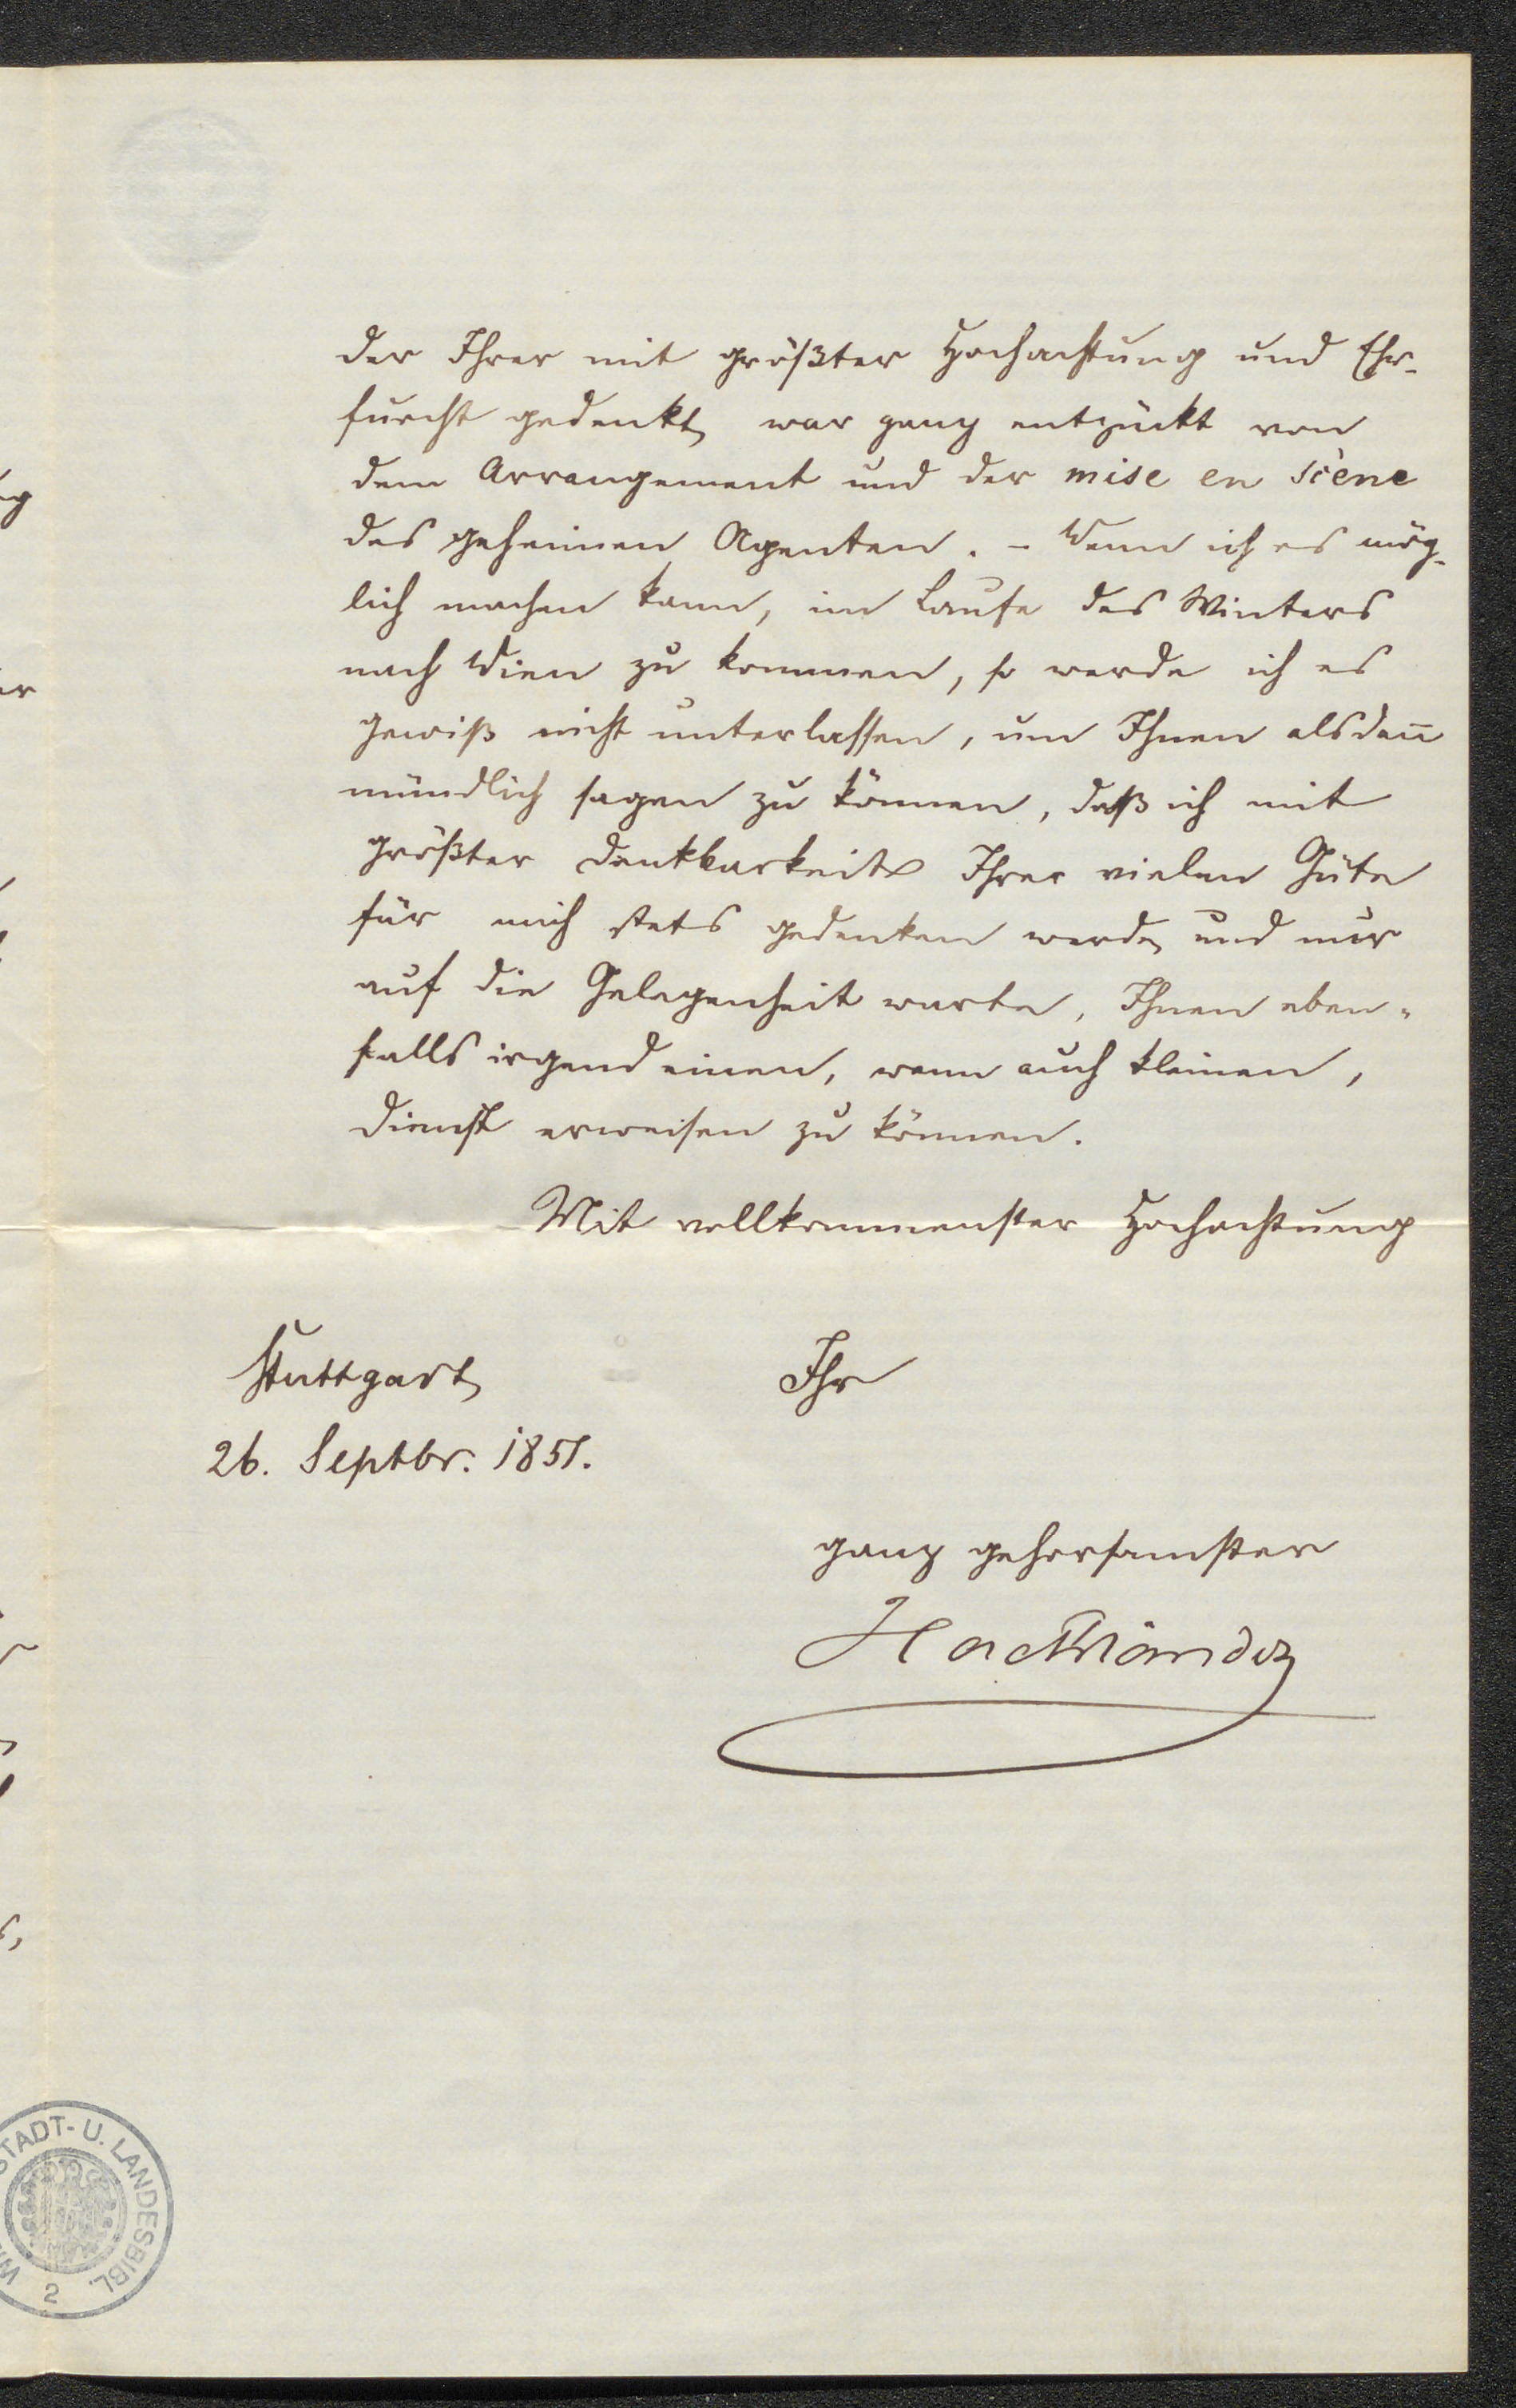 der Ihrer mit größter Hochachtung und Ehr-
furcht gedenkt, war ganz entzückt von
dem Arrangement und der mise en scène
des geheimen Agenten. – Wenn ich es mög-
lich machen kann, im Laufe des Winters
nach Wien zu kommen, so werde ich es
gewiß nicht unterlassen, um Ihnen alsdan̅
mündlich sagen zu können, daß ich mit
größter Dankbarkeit Ihrer vielen Güte
für mich stets gedenken werde, und nur
auf die Gelegenheit warte, Ihnen eben-
falls irgend einen, wenn auch kleinen,
Dienst erweisen zu können.
Mit vollkommenster Hochachtung
Stuttgart
Ihr
26. Septbr. 1851.
ganz gehorsamster
Hackländer
STADT- U. LANDESBIBL.
2